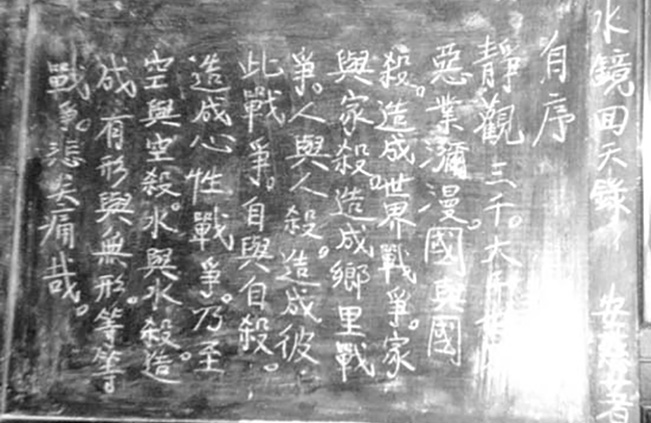 水鏡回天錄 安慈著
自序
靜觀三千。大千
惡業瀰漫。國與國
殺。造成世界戰爭。家
與家殺。造成鄉里戰
爭。人與人殺。造成彼
此戰爭。自與自殺。
造成心性戰爭。乃至
空與空殺。水與水殺。造
成有形與無形。等等
戰爭。悲矣痛哉。